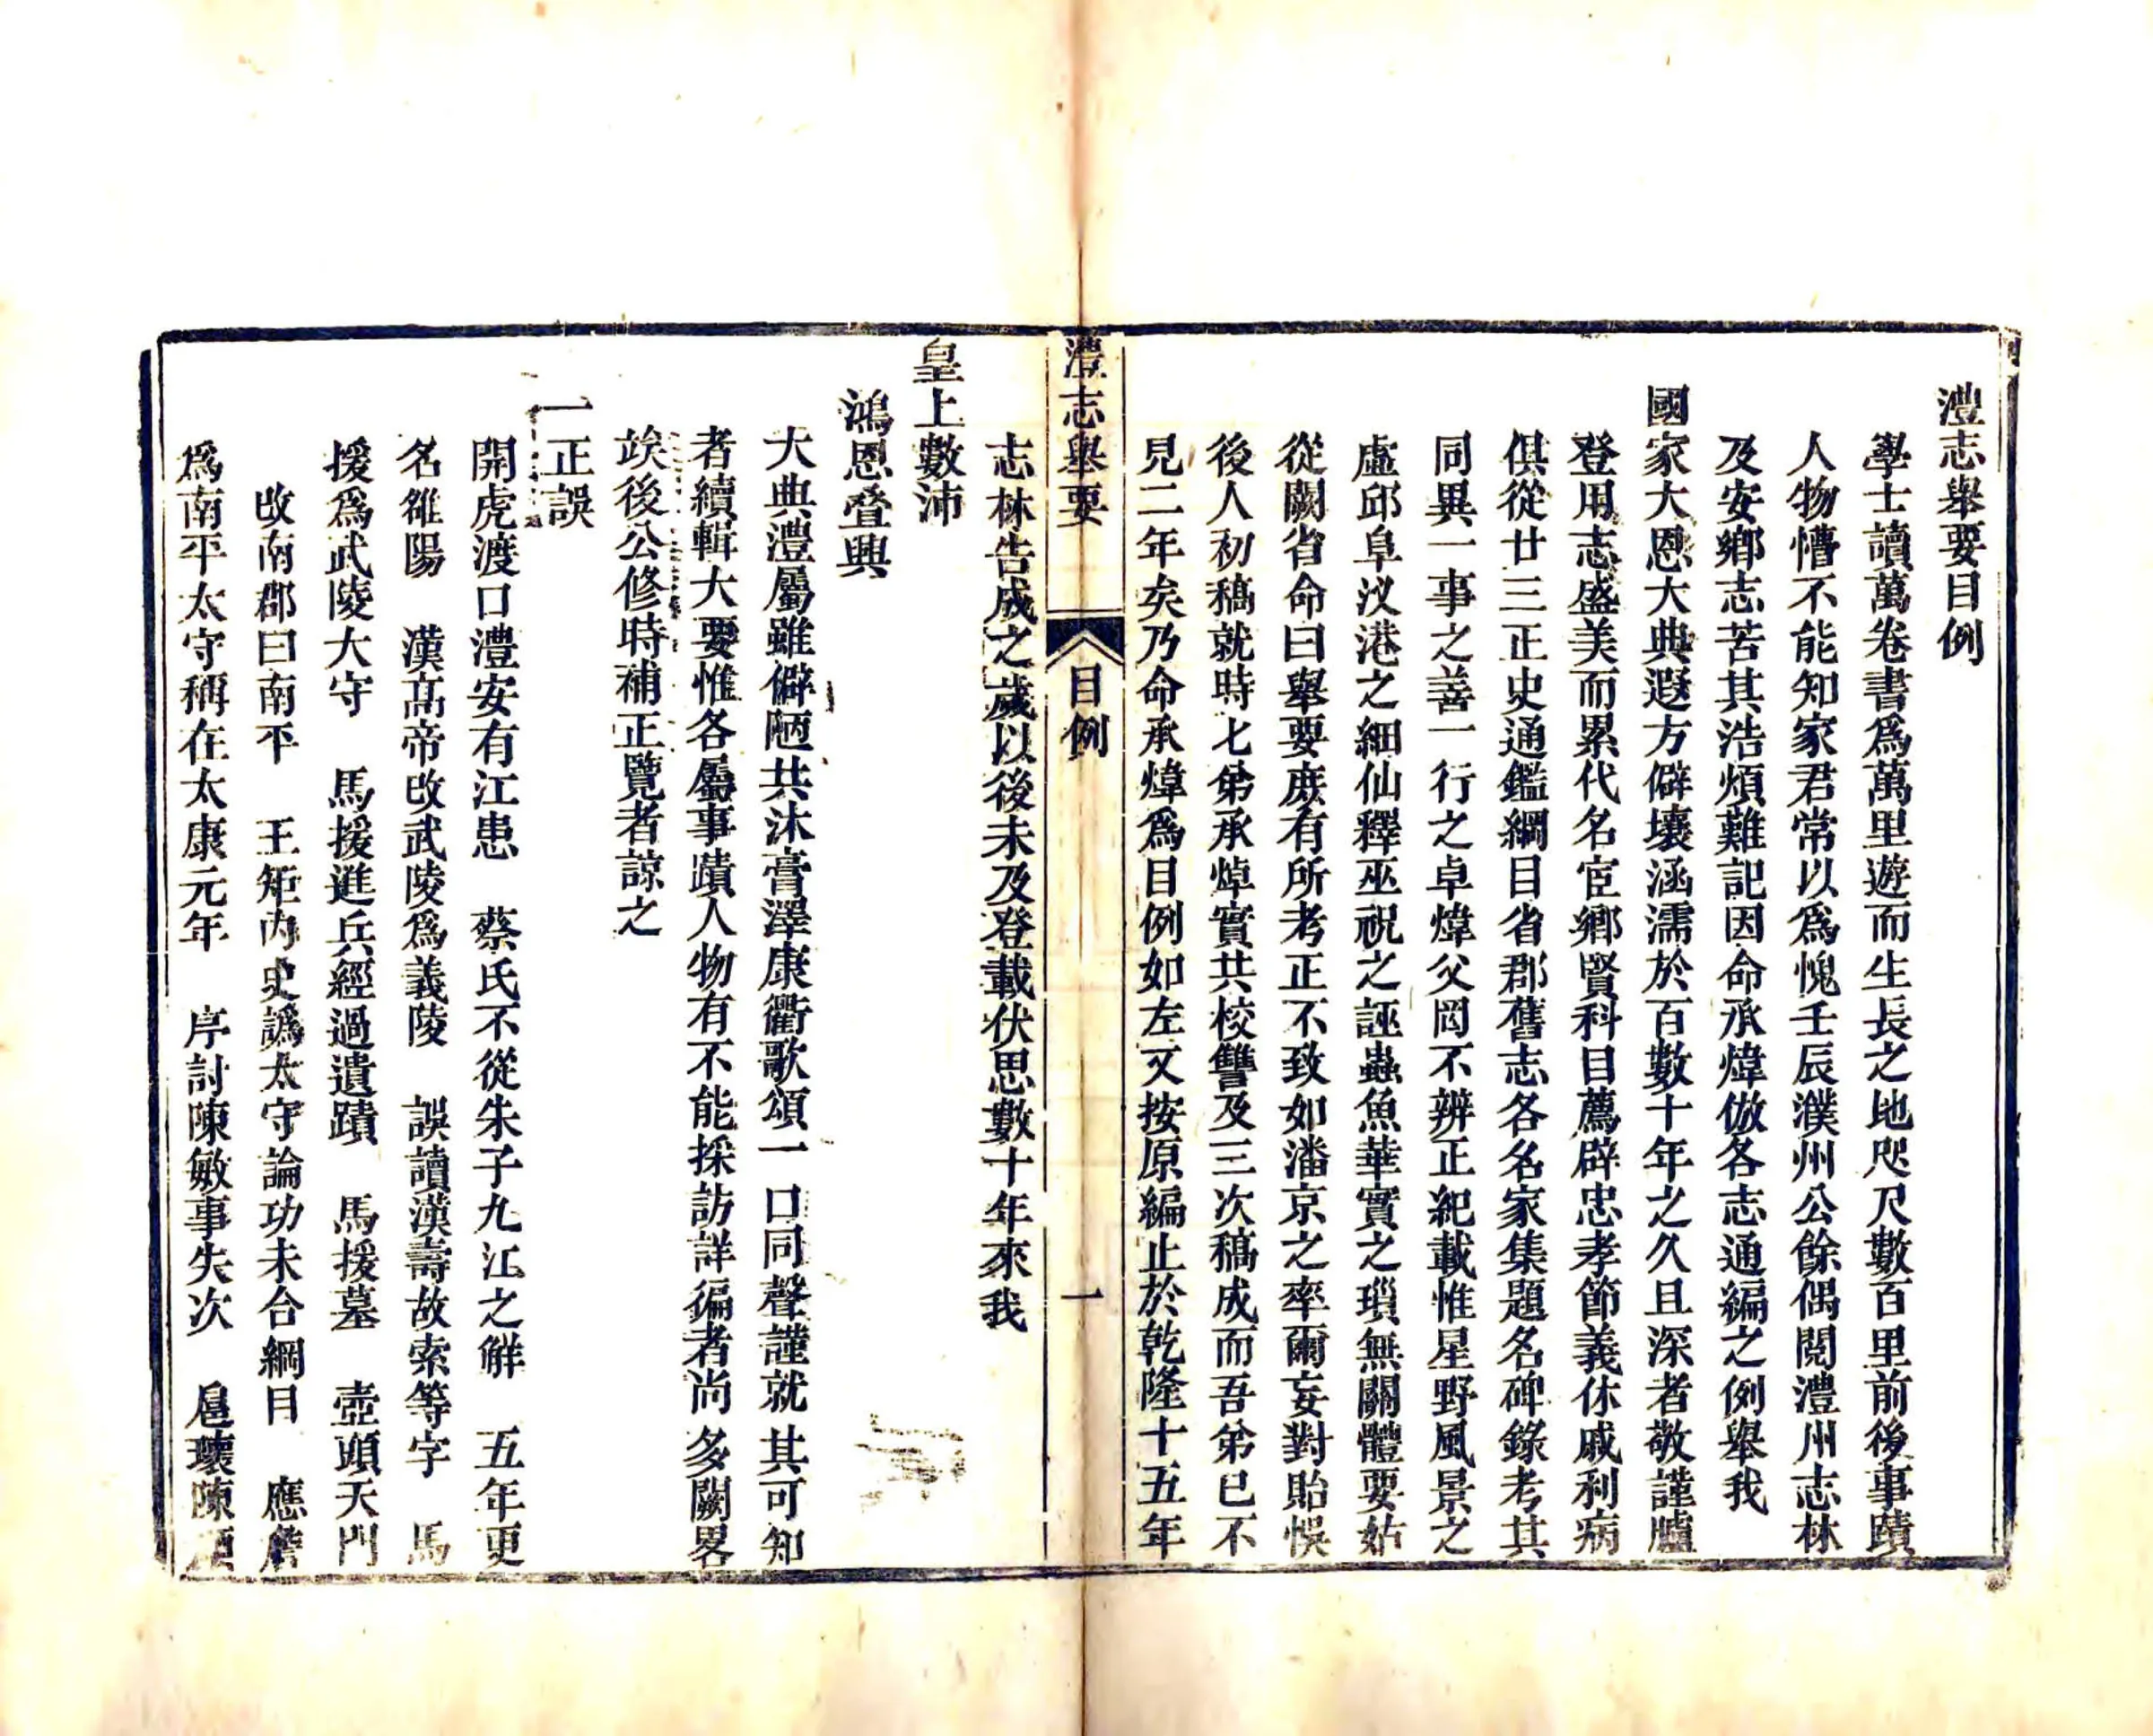 澧志舉要目例
學士讀萬卷書爲萬里遊而生長之地咫尺數百里前後事蹟
人物懵不能知家君常以爲愧壬辰濮州公餘偶閱澧州志林
及安鄉志苦其浩煩難記因命承煒倣各志通編之例舉我
國家大恩大典遐方僻壤涵濡於百數十年之久且深者敬謹臚
登用志盛美而累代名宦鄉賢科目薦辟忠孝節義休戚利病
俱從廿三正史通鑑綱目省郡舊志各名家集題名碑錄考其
同異一事之善一行之卓煒父罔不辨正紀載惟星野風景之
虛邱阜汊港之細仙釋巫祝之誣蟲魚華實之瑣無關體要姑
從闕省命曰舉要庶有所考正不致如潘京之率爾妄對貽悞
後人初稿就時七弟承焯實共校讐及三次稿成而吾弟已不
見二年矣乃命承煒爲目例如左又按原編止於乾隆十五年
澧志舉要 目例 一
志林告成之歲以後未及登載伏思數十年來我
皇上數沛
鴻恩叠興
大典澧屬雖僻陋共沐膏澤康衢歌頌一口同聲謹就其可知
者續輯大要惟各屬事蹟人物有不能採訪詳徧者尚多闕畧
竢後公修時補正覽者諒之
一正誤
開虎渡口澧安有江患 蔡氏不從朱子九江之解 五年更
名雒陽 漢高帝改武陵爲義陵 誤讀漢壽故索等字 馬
援爲武陵大守 馬援進兵經過遺蹟 馬援墓 壺頭天門
改南郡曰南平 王矩內史譌太守論功未合綱目 應詹
爲南平太守稱在太康元年 序討陳敏事失次 扈瓌陳